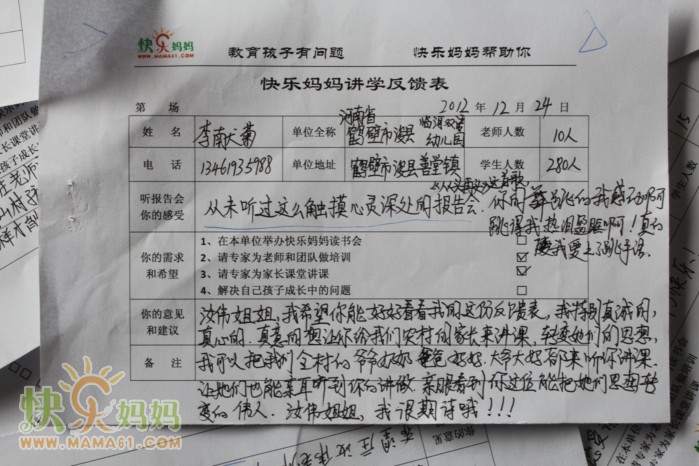 快乐妈妈
WWW.MAMA61.COM
教育孩子有问题 快乐妈妈帮助你
快乐妈妈讲学反馈表
第 场 2012 年 12 月 24 日
姓 名 李南大菊 单位全称 河南省鹤壁市浚县临淇双语幼儿园 老师人数 10人
电 话 13461935988 单位地址 鹤壁市浚县善堂镇 学生人数 280人
听报告会你的感受 从未听过这么触摸心灵深处的报告会
你的需求和希望
1、在本单位举办快乐妈妈读书会
2、请专家为老师和团队做培训
3、请专家为家长课堂讲课
4、解决自己孩子成长中的问题
你的意见和建议 汝伟姐姐,我希望你能好好看看我的这份反馈表,我特别真诚的,
真心的,真意的想让你给我们农村的家长来讲课,转变她们的思想,
备 注 我可以把我们全村的爷爷奶奶 爸爸妈妈,大爷大妈都来听你讲课
让她们也能亲耳听到你的讲做 亲眼看到你这位能把她们思想转
变的伟人。汝伟姐姐,我很期待哦!!!
快乐妈妈
WWW.MAMA61.COM